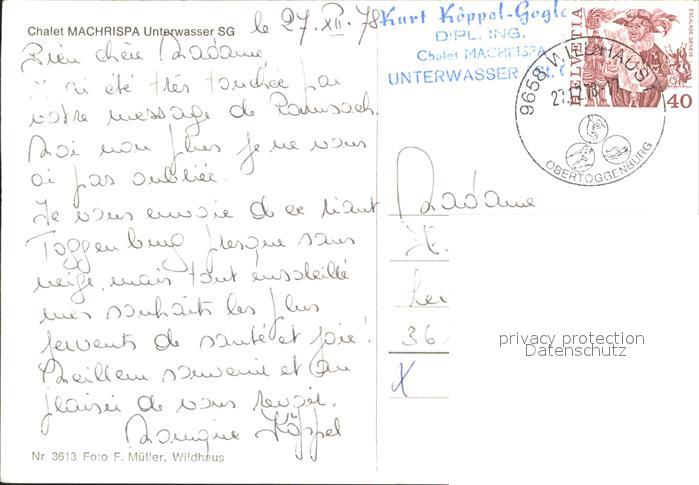 Chalet MACHRISPA Unterwasser SG
le 27. XII. 78
Kurt Köppel-Gogle
DIPL. ING.
Chalet MACHRISPA
UNTERWASSER St.
HELVETIA
ESCALADE GENÈVE
40
9658 WILDHAUS
27.12.78-17
OBERTOGGENBURG
Bien chère Madame
J'ai été très touchée par
votre message de
Moi non plus je ne vous
ai pas oubliée.
Je vous envoie de ce riant
Toggenburg presque sans
neige, mais tout ensoleillé
mes souhaits les plus
fervents de santé et joie!
Meilleur souvenir et au
plaisir de vous revoir.
Monique Köppel
Madame
36
X
privacy protection
Datenschutz
Nr. 3613 Foto F. Müller, Wildhaus